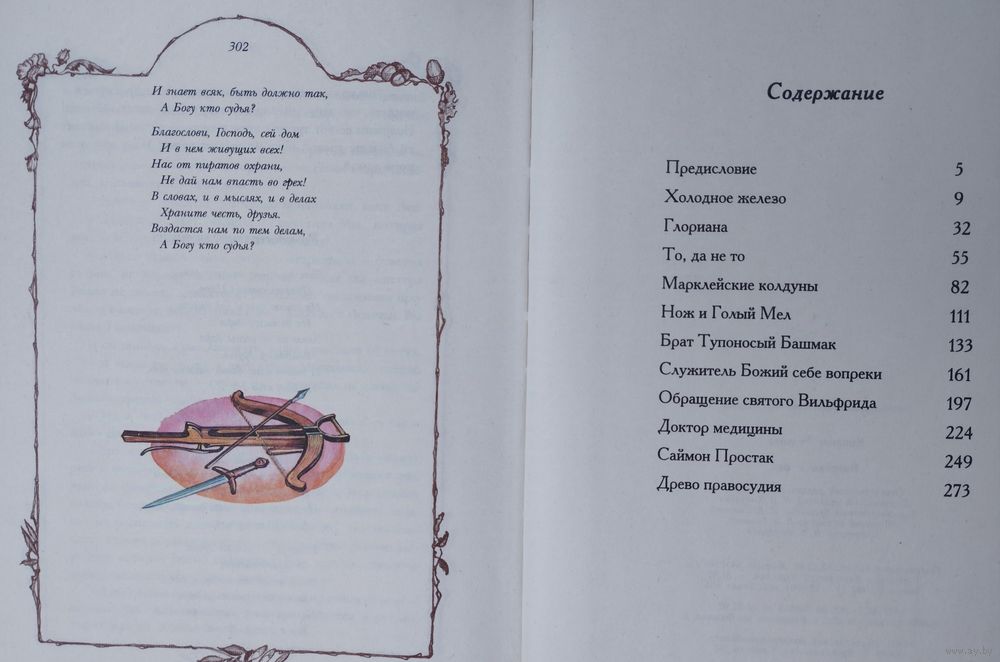 302
И знает всяк, быть должно так,
А Богу кто судья?
Благослови, Господь, сей дом
И в нем живущих всех!
Нас от пиратов охрани,
Не дай нам впасть во грех!
В словах, и в мыслях, и в делах
Храните честь, друзья.
Воздастся нам по тем делам,
А Богу кто судья?
Содержание
Предисловие 5
Холодное железо 9
Глориана 32
То, да не то 55
Марклейские колдуны 82
Нож и Голый Мел 111
Брат Тупоносый Башмак 133
Служитель Божий себе вопреки 161
Обращение святого Вильфрида 197
Доктор медицины 224
Саймон Простак 249
Древо правосудия 273
www.ay.by